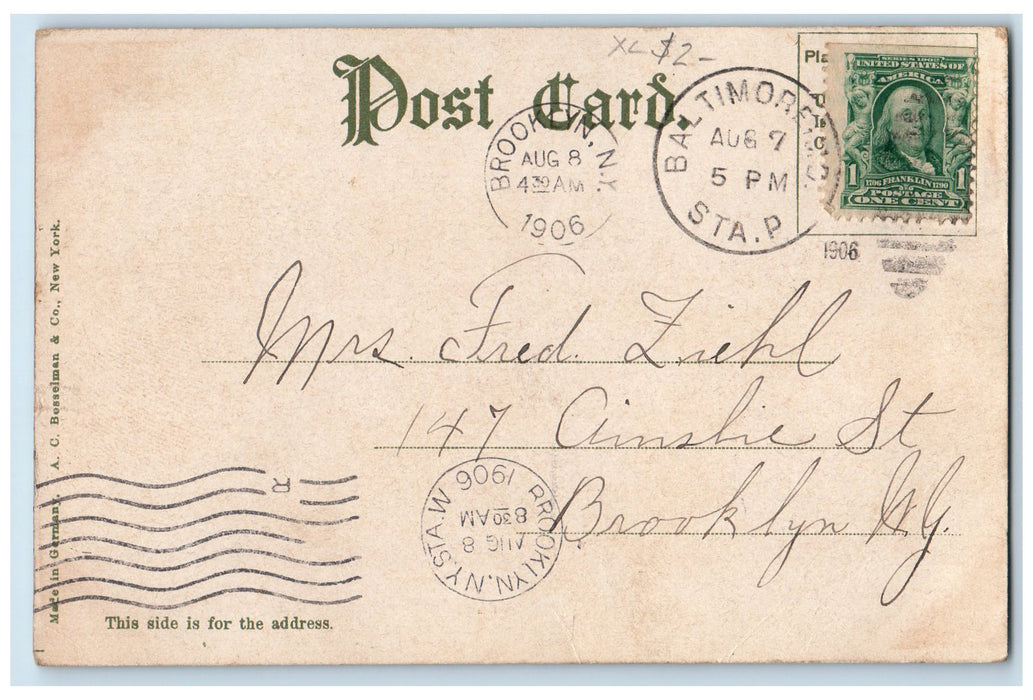 XC $2-
Post Card.
Pla
SERIES 1902
UNITED STATES OF
AMERICA
1 1706 FRANKLIN 1790 1
POSTAGE
ONE CENT
BALTIMORE, MD.
AUG 7
5 PM
STA. P
1906
BROOKLYN, N.Y.
AUG 8
4 30 AM
1906
Mrs. Fred. Ziehl
147 Ainslie St
Brooklyn N.Y.
BROOKLYN, N.Y. STA. W
AUG 8
8 30 AM
1906
R
Made in Germany. A. C. Bosselman & Co., New York.
This side is for the address.